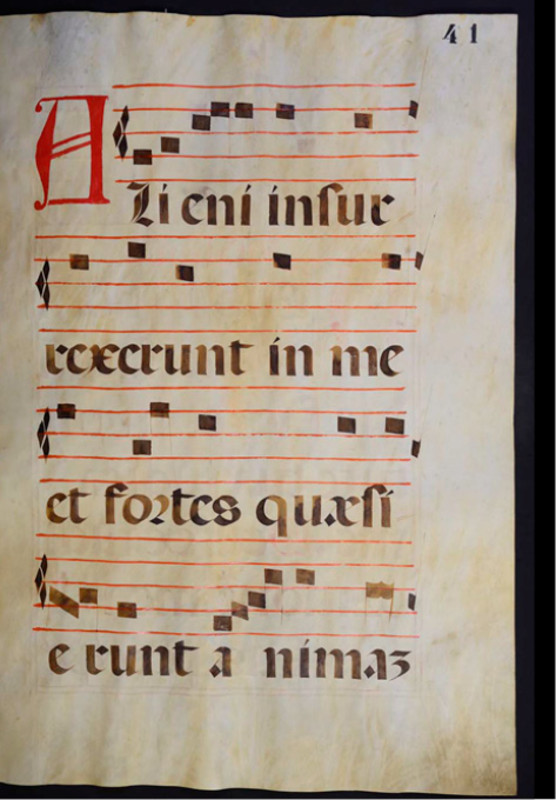 41
ALi eni insur
rexerunt in me
et fortes quæsi
erunt a nimaz